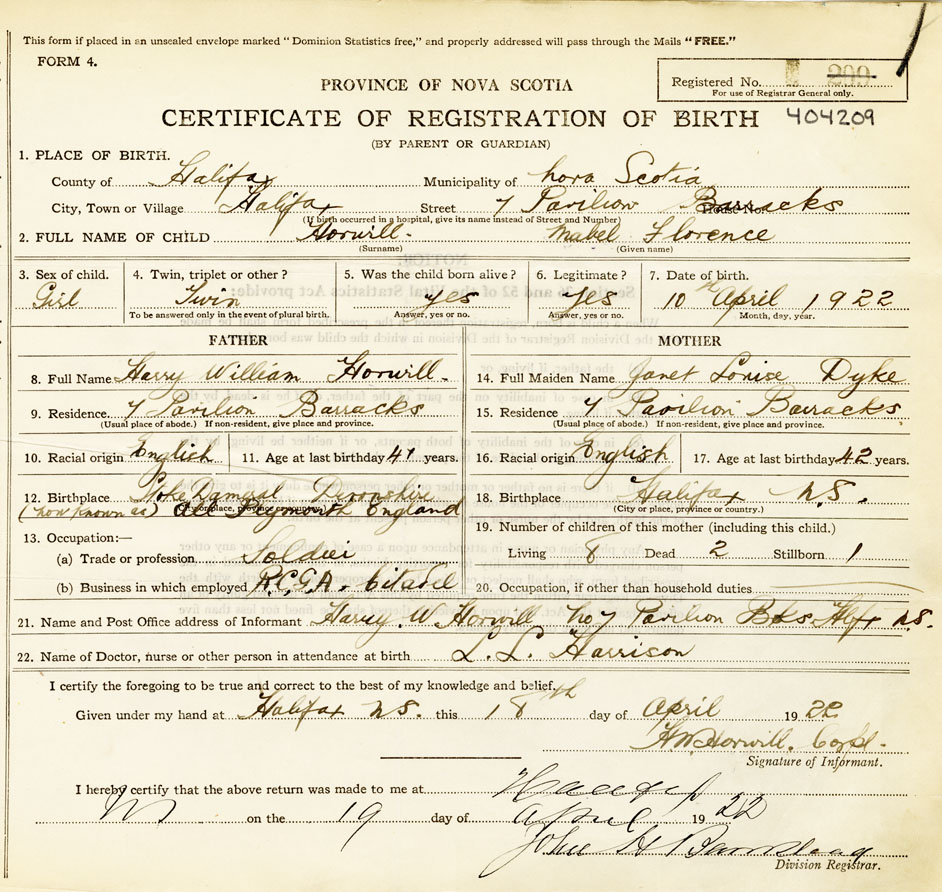 This form if placed in an unsealed envelope marked "Dominion Statistics free," and properly addressed will pass through the Mails "FREE."
FORM 4.
PROVINCE OF NOVA SCOTIA
Registered No. 209
For use of Registrar General only.
CERTIFICATE OF REGISTRATION OF BIRTH 404209
(BY PARENT OR GUARDIAN)
1. PLACE OF BIRTH.
County of Halifax Municipality of Nova Scotia
City, Town or Village Halifax Street 7 Pavilion Barracks
(If birth occurred in a hospital, give its name instead of Street and Number)
2. FULL NAME OF CHILD Horwill. Mabel Florence
(Surname) (Given name)
3. Sex of child. 4. Twin, triplet or other? 5. Was the child born alive? 6. Legitimate? 7. Date of birth.
Girl Twin yes Yes 10th April 1922
To be answered only in the event of plural birth. Answer, yes or no. Answer, yes or no. Month, day, year.
FATHER MOTHER
8. Full Name Harry William Horwill. 14. Full Maiden Name Janet Louise Dyke
9. Residence. 7 Pavilion Barracks 15. Residence 7 Pavilion Barracks
(Usual place of abode.) If non-resident, give place and province. (Usual place of abode.) If non-resident, give place and province.
10. Racial origin English 11. Age at last birthday 41 years. 16. Racial origin English 17. Age at last birthday 42 years.
12. Birthplace Stoke Dameral Devonshire 18. Birthplace Halifax N.S.
(City or place, province or country.) (City or place, province or country.)
(now known as) all Plymouth England
13. Occupation:— 19. Number of children of this mother (including this child.)
(a) Trade or profession Soldier Living 8 Dead 2 Stillborn 1
(b) Business in which employed R.C.G.A. Citadel 20. Occupation, if other than household duties
21. Name and Post Office address of Informant Harry. W. Horwill No 7 Pavilion Bks Hfx N.S.
22. Name of Doctor, nurse or other person in attendance at birth L. L. Harrison
I certify the foregoing to be true and correct to the best of my knowledge and belief.
Given under my hand at Halifax N.S. this 18th day of April 1922
H W Horwill. Corpl.
Signature of Informant.
I hereby certify that the above return was made to me at Halifax
on the 19 day of April 1922
John H Barnstead
Division Registrar.